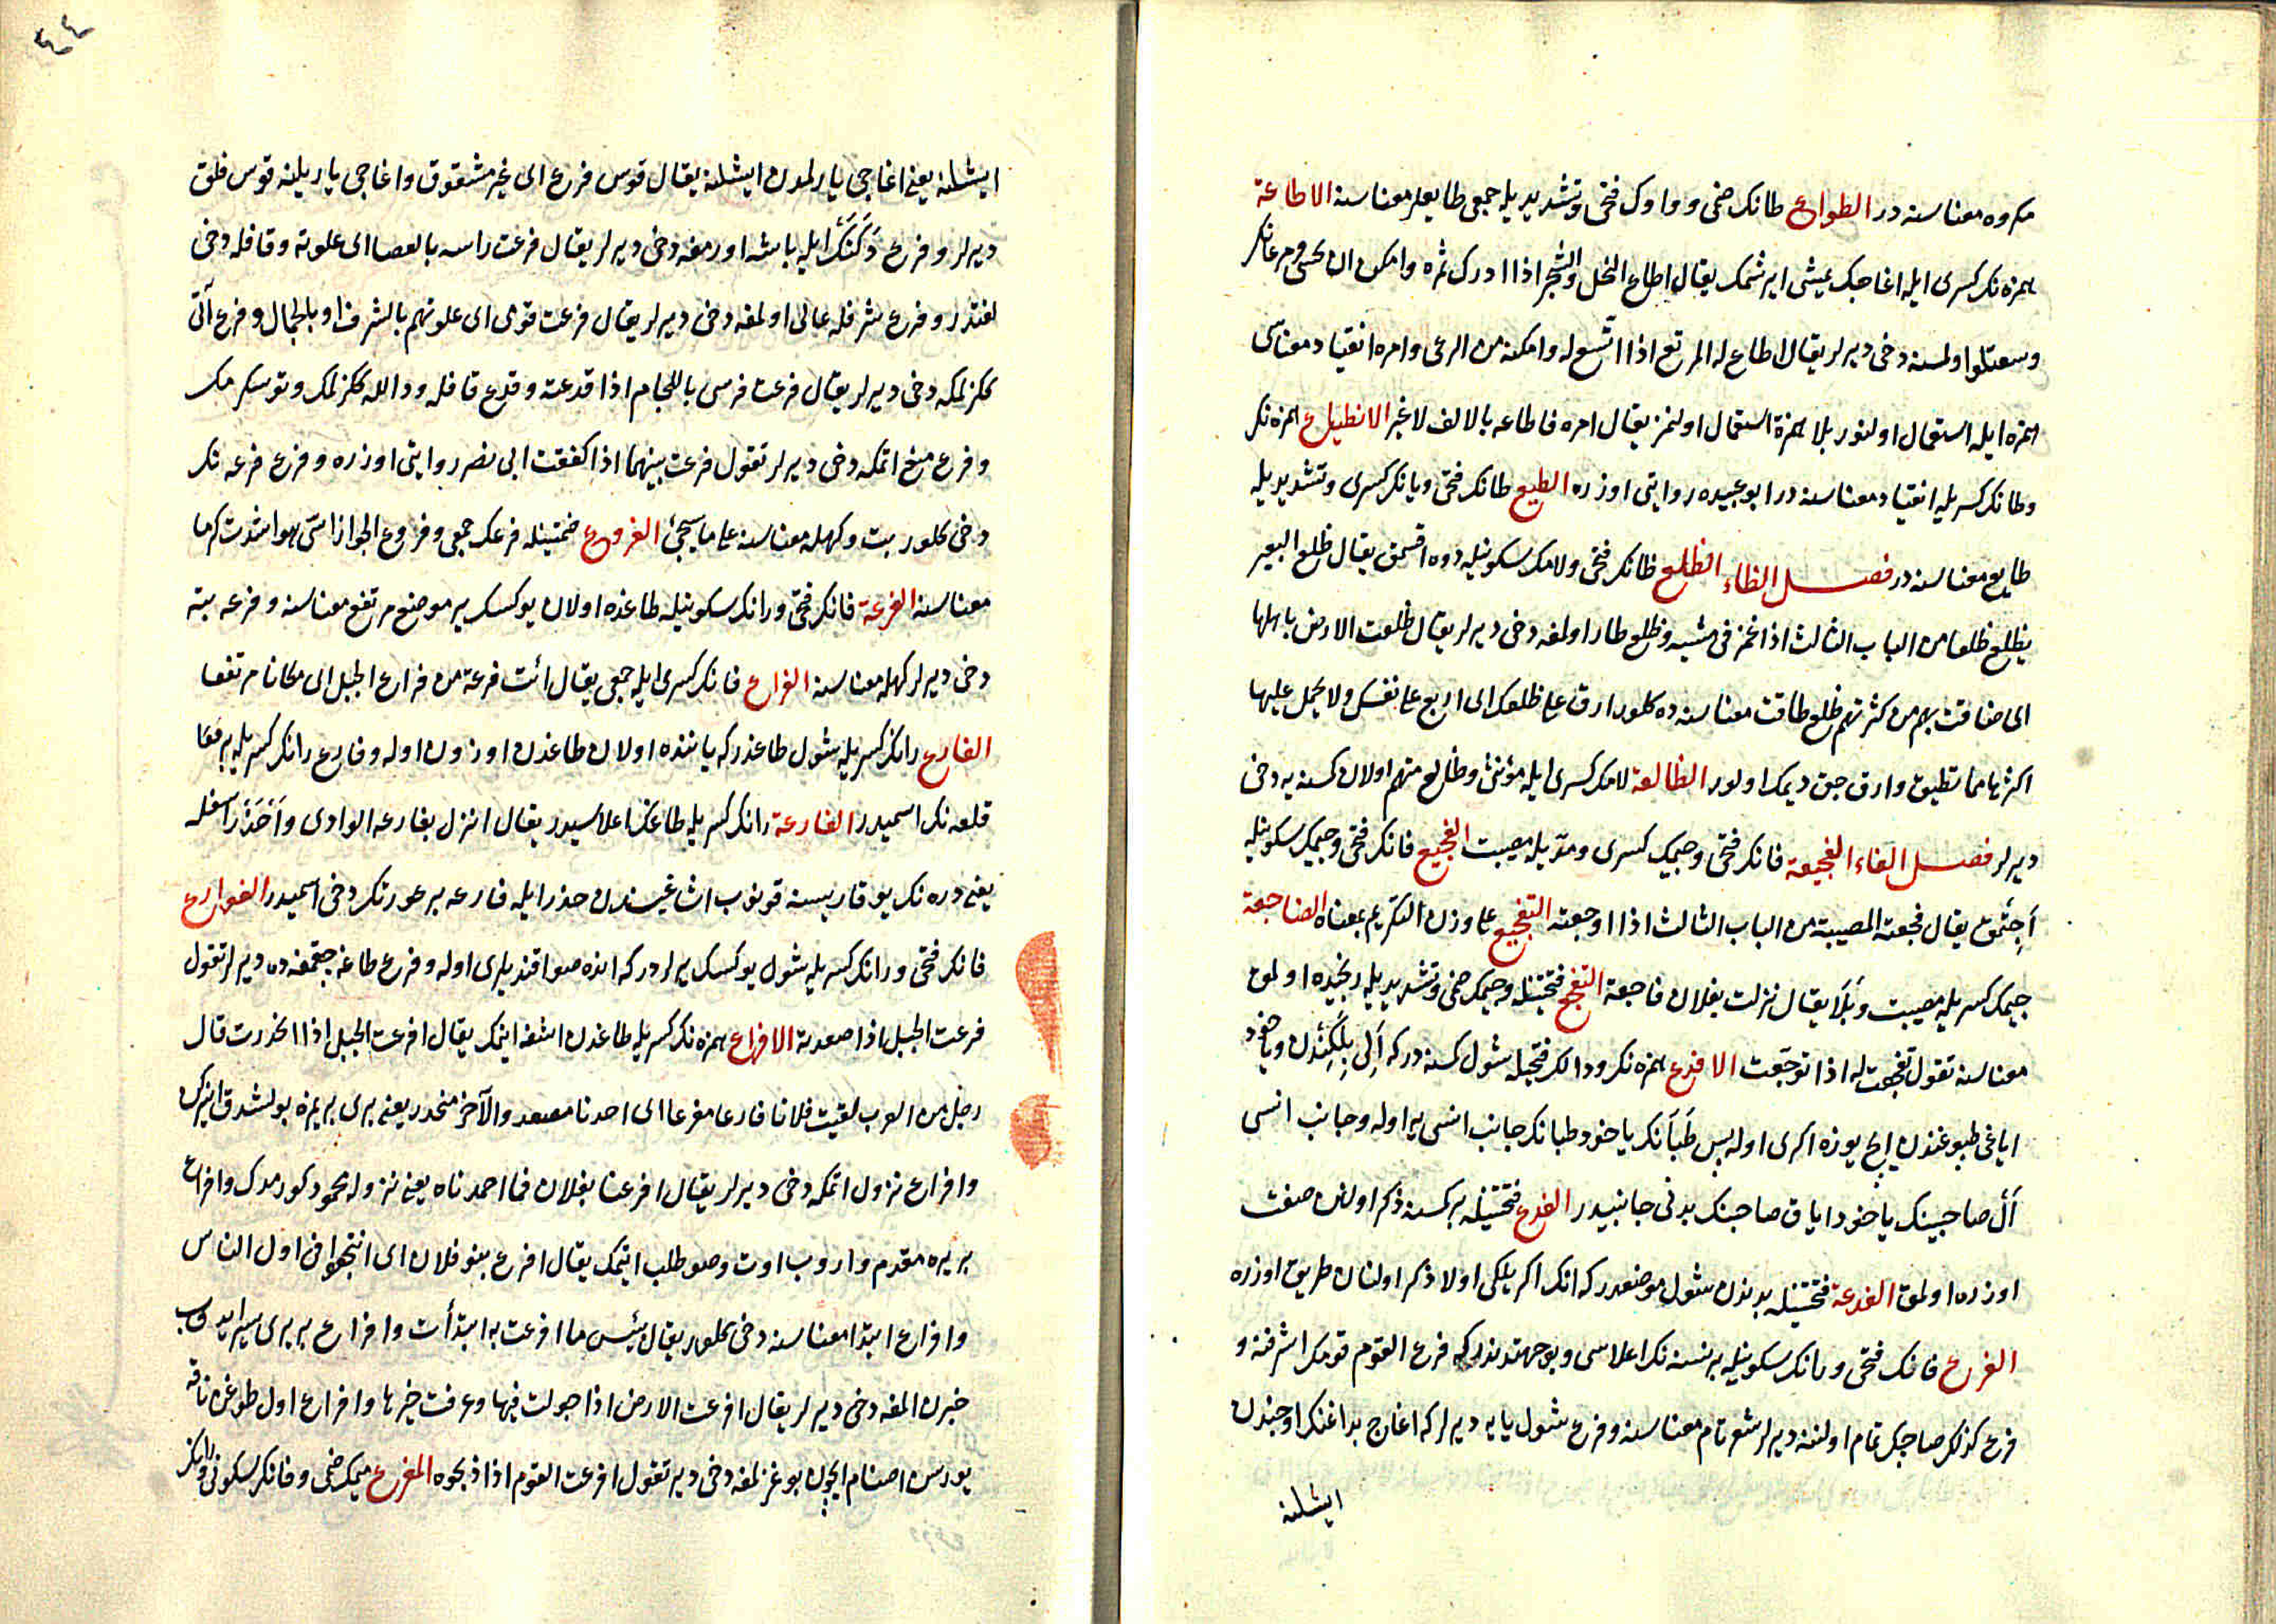 مكروه معناسنه در الطواع طانك ضمى وواوك فتحى وتشديديله جمعى طايعلر معناسنه الاطاعة
همزه نك كسرى ايله اغاجك يمشى ايرشمك يقال اطاع النخل والشجر اذا ادرك ثمره وامكن ان يجتنى ومرعانك
وسعتلو اولمسنه دخى ديرلر يقال اطاع له المرتع اذا اتسع له وامكنه من الرعى وامره انقياد معناسى
همزه ايله استعمال اولنور بلا همزة استعمال اولنمز يقال امره فاطاعه بالالف لا غير الانطياع همزه نك
وطانك كسريله انقياد معناسنه در ابو عبيده روايتى اوزره الطيع طانك فتحى ويانك كسرى وتشديديله
طايع معناسنه در فصل الظاء الظلع ظانك فتحى ولامك سكونيله دوه اقسمق يقال ظلع البعير
يظلع ظلعا من الباب الثالث اذا غمز فى مشيه وظلع طار اولمغه دخى ديرلر يقال ظلعت الارض باهلها
اى ضاقت بهم من كثرتهم ظلع طاقت معناسنه ده كلور ارق على ظلعك اى اربع على نفسك ولا تحمل عليها
اكثر مما تطيق وارق جق ديمك اولور الظالعة لامك كسرى ايله مؤنثى وظالع متهم اولان كسنه يه دخى
ديرلر فصل الفاء الفجيعة فانك فتحى وجيمك كسرى ومديله مصيبت الفجع فانك فتحى وجيمك سكونيله
اجتمق يقال فجعته المصيبة من الباب الثالث اذا اوجعته التفجيع على وزن التكريم بمعناه الفاجعة
جيمك كسريله مصيبت وبلا يقال نزلت بفلان فاجعة التفجع فتحتينله وجيمك ضمى وتشديديله رنجيده اولمق
معناسنه تقول تفجعت له اذا توجعت الافدع همزه نك ودالك فتحيله شول كسنه در كه الى بلكندن وياخود
اياغى طپوغندن ايچ يوزه اكرى اوله پس طبانك ياخود طبانك جانب انسى يه اوله وجانب انسى
ال صاحبينك ياخود اياق صاحبنك بدنى جانبيدر الفدع فتحتينله بر كسنه ذكر اولنان صفت
اوزره اولمق الفدعة فتحتينله بدندن شول موضعدر كه انك اكريلكى اولا ذكر اولنان طريق اوزره
الفرع فانك فتحى ورانك سكونيله بر نسنه نك اعلاسى وبو جهتدندر كه فرع القوم قومك اشرفنه و
فرع كذلك صاچك تمام اولننه ديرلر شعر تام معناسنه وفرع شول يايه ديرلر كه اغاج بداغنك اوجندن
ايشلنه
٤٤
ايشلنه يعنى اغاجى يارلمدن ايشلنه يقال قوس فرع اى غير مشقوق واغاجى ياريلنه قوس فلق
ديرلر وفرع دكنك ايله باشه اورمغه دخى ديرلر يقال فرعت راسه بالعصا اى علوته وقافله دخى
لغتدر وفرع شرفله عالى اولمغه دخى ديرلر يقال فرعت قومى اى علوتهم بالشرف او بالجمال وفرع آتى
كزلمكه دخى ديرلر يقال فرعت فرسى باللجام اذا قدعته وقدع قافله ودالله كزلمك
وفرع منع اتمكه دخى ديرلر تقول فرعت بينهما اذا كففت ابى نصر روايتى اوزره وفرع فرعه نك
دخى كلور بت وكهله معناسنه على ما سيجئ الفروع ضمتينله فرعك جمعى وفروع الجوزا
معناسنه الفرعة فانك فتحى ورانك سكونيله طاغده اولان يوكسك ير موضع مرتفع معناسنه وفرعه بته
دخى ديرلر كهله معناسنه الفراع فانك كسرى ايله جمعى يقال ائت فرعة من فراع الجبل اى مكانا مرتفعا
الفارع رانك كسريله شول طاغدر كه ياننده اولان طاغدن اوزون اوله وفارع رانك كسريله بر
قلعه نك اسميدر الفارعة رانك كسريله طاغك اعلاسيدر يقال انزل بفارعة الوادى واحذر اسفله
يعنى دره نك يوقاريسنه قونوب اشاغيسندن حذر ايله فارعه بر عورتك دخى اسميدر الفوارع
فانك فتحى ورانك كسريله شول يوكسك يرلر در كه انده صو اقنديلرى اوله وفرع طاغه چقمغه ده ديرلر تقول
فرعت الجبل اذا صعدته الافراع همزه نك كسريله طاغدن اشغه اينمك يقال افرعت الجبل اذا انحدرت قال
رجل من العرب لقيت فلانا فارعا مفرعا اى احدنا مصعد والآخر منحدر يعنى برى بريمزه بولشدق
وافراع نزول اتمكه دخى ديرلر يقال افرعنا بفلان فما احمدناه يعنى نزوله محمود كورمدك وافراع
بر يره مقدم واروب اوت وصو طلب ايتمك يقال افرع بنو فلان اى انتجعوا فى اول الناس
وافراع ابتدا معناسنه دخى كلور يقال بئس ما افرعت به ابتدأت وافراع بر يرى سيرايدوب
خبرن المغه دخى ديرلر يقال افرعت الارض اذا جولت فيها وعرفت خبرها وافراع اول طوغن ناقه
يورسن اصنام ايچون بوغزلمغه دخى دير تقول افرعت القوم اذا ذبحوه المفرع ميمك ضمى وفانك سكونى ورانك